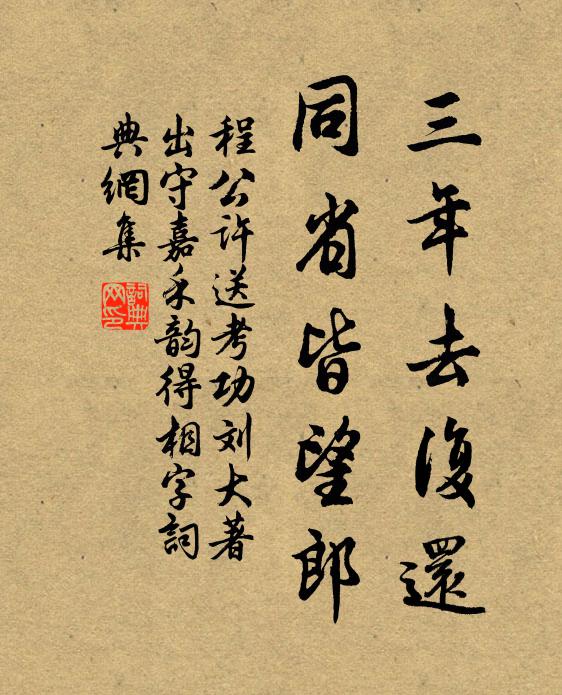 三年去復還
同省皆望郎
程公许送考功刘大著
出守嘉禾韵得相字詞
典網集
詞典
网印